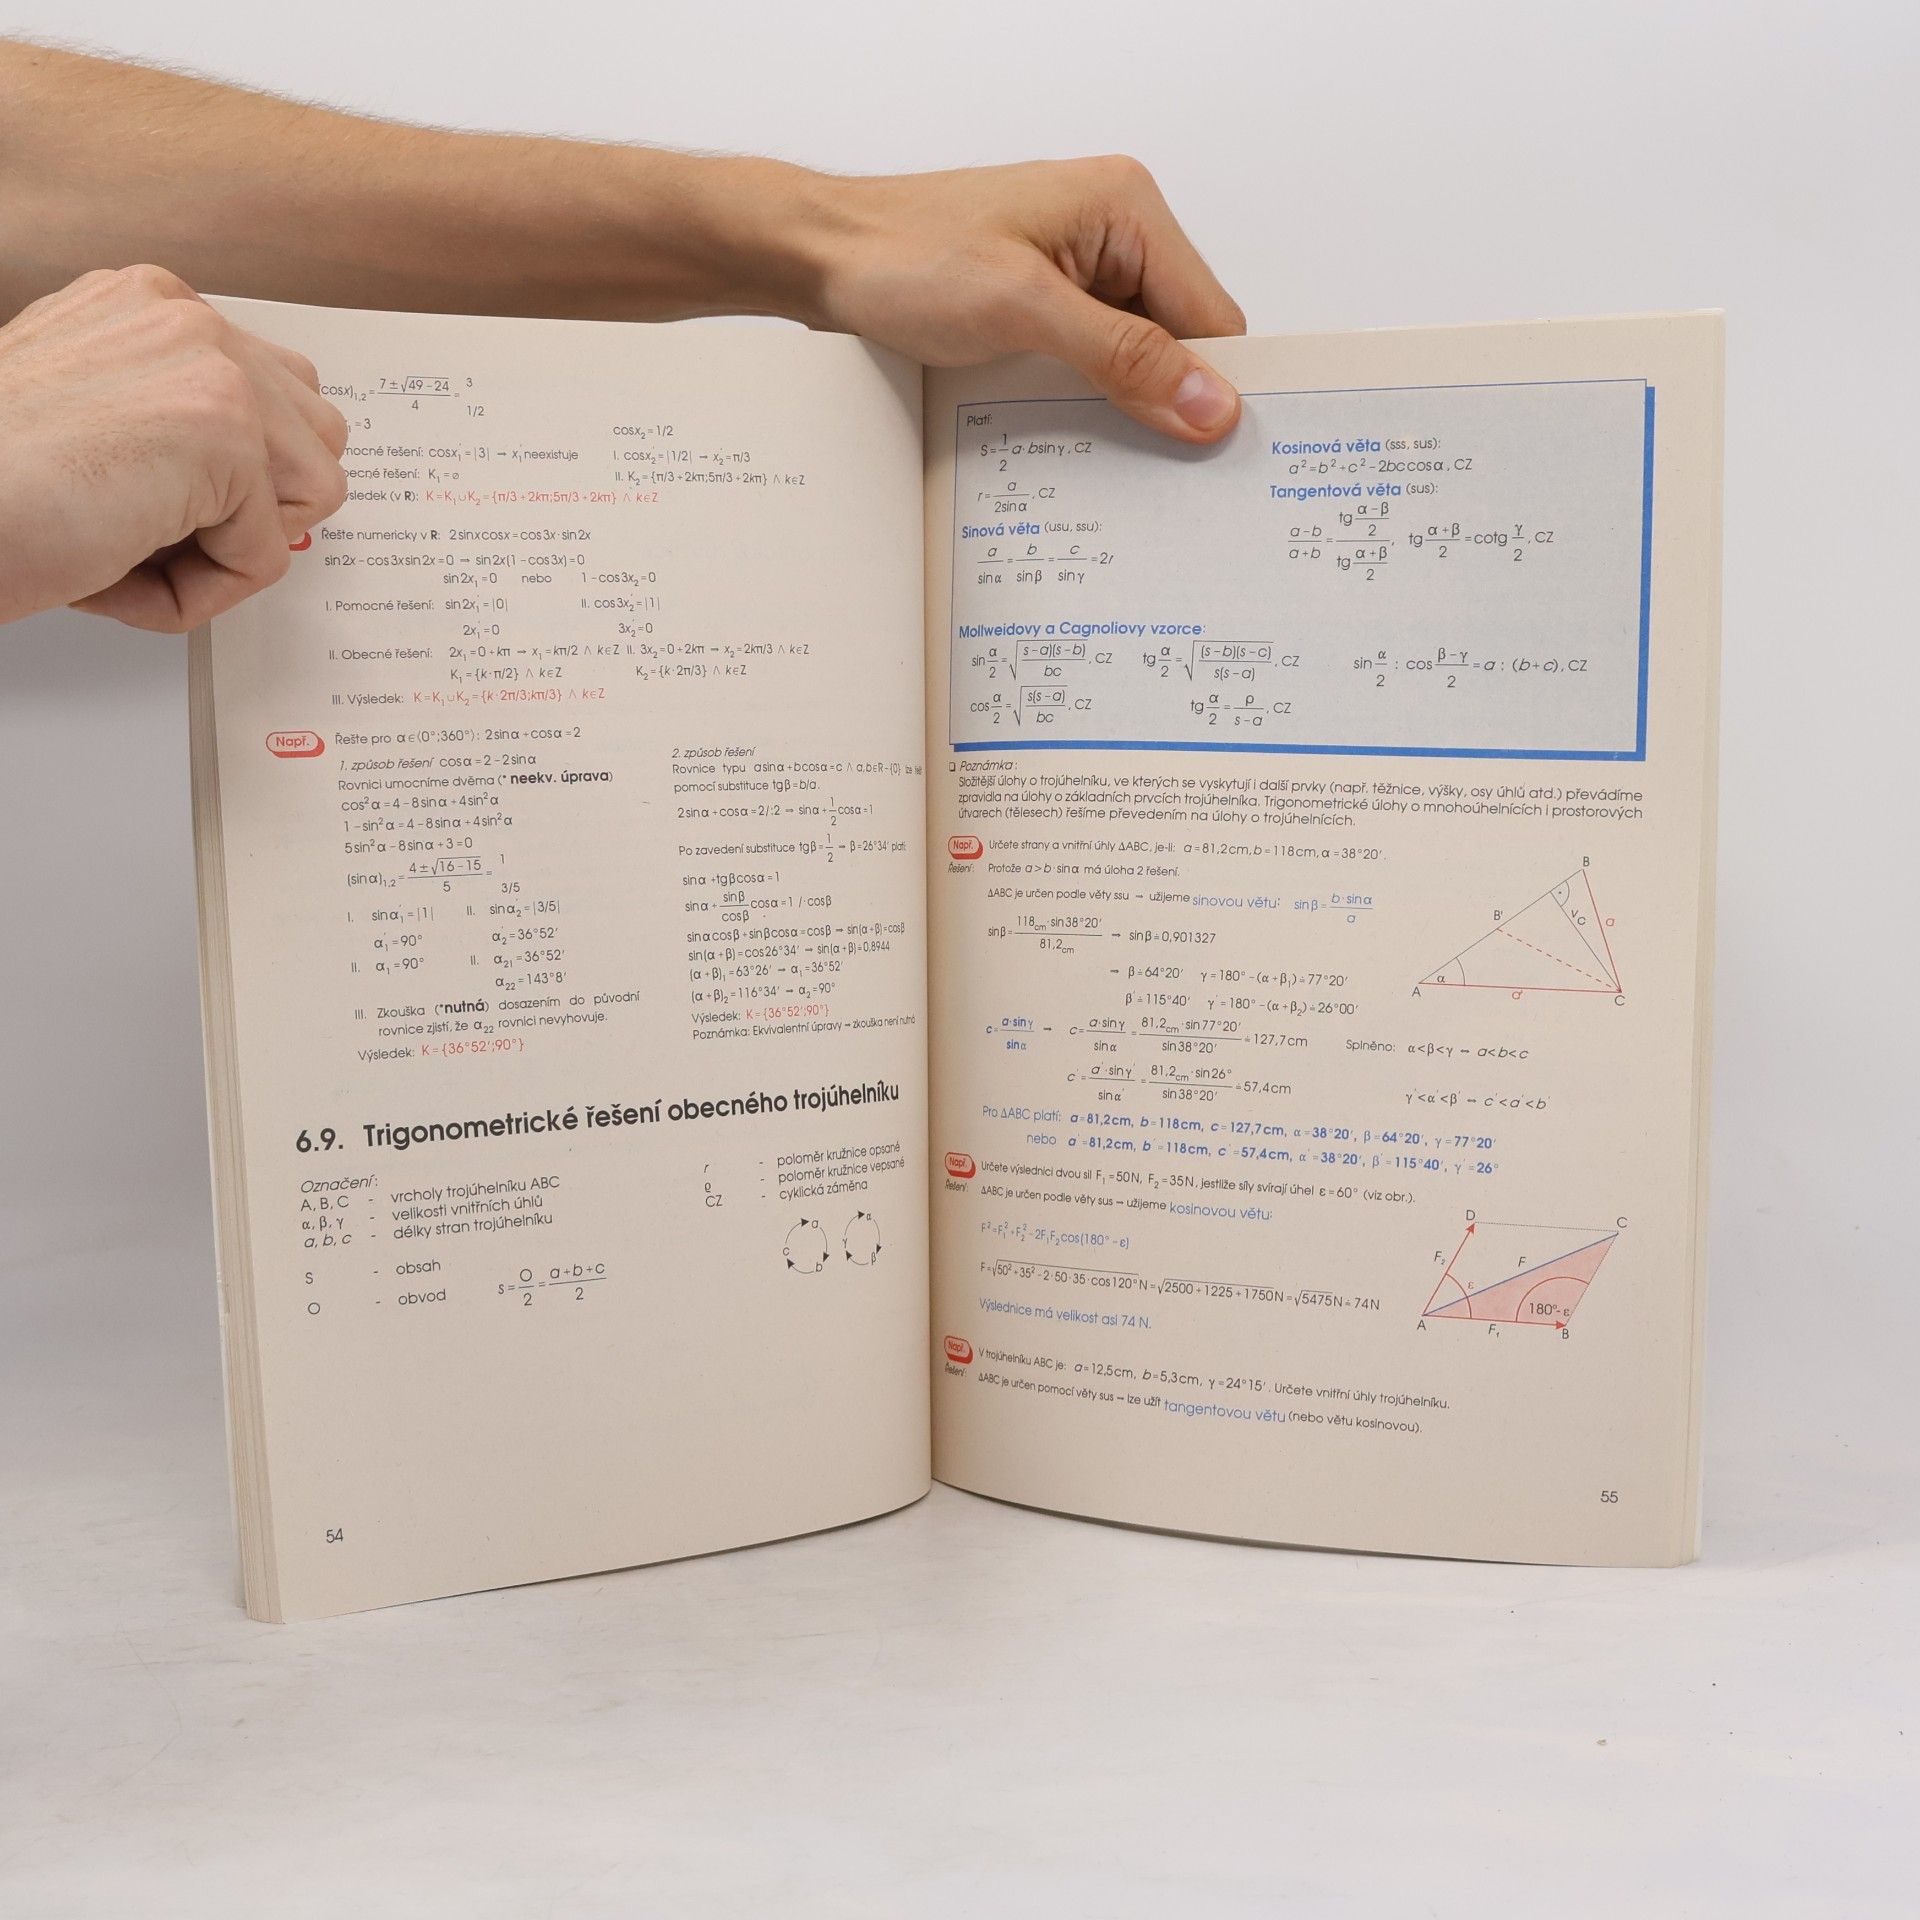 (cosx)₁,₂ = (7 ± √(49 - 24))/4 = 3
1/2
₁ = 3
cosx₂ = 1/2
řešení: cosx₁' = |3| → x₁' neexistuje
I. cosx₂' = |1/2| → x₂' = π/3
řešení: K₁ = ∅
II. K₂ = {π/3 + 2kπ; 5π/3 + 2kπ} ∧ k∈Z
(v R): K = K₁ ∪ K₂ = {π/3 + 2kπ; 5π/3 + 2kπ} ∧ k∈Z
Řešte numericky v R: 2 sinx cosx = cos3x · sin2x
sin2x - cos3x sin2x = 0 → sin2x(1 - cos3x) = 0
sin2x₁ = 0 nebo 1 - cos3x₂ = 0
I. Pomocné řešení: sin2x₁' = |0| II. cos3x₂' = |1|
2x₁' = 0 3x₂' = 0
II. Obecné řešení: 2x₁ = 0 + kπ → x₁ = kπ/2 ∧ k∈Z II. 3x₂ = 0 + 2kπ → x₂ = 2kπ/3 ∧ k∈Z
K₁ = {k·π/2} ∧ k∈Z K₂ = {k·2π/3} ∧ k∈Z
III. Výsledek: K = K₁ ∪ K₂ = {k·2π/3; kπ/3} ∧ k∈Z
Např. Řešte pro α∈⟨0°;360°): 2sinα + cosα = 2
1. způsob řešení cosα = 2 - 2sinα
Rovnici umocníme dvěma (* neekv. úprava)
cos²α = 4 - 8sinα + 4sin²α
1 - sin²α = 4 - 8sinα + 4sin²α
5sin²α - 8sinα + 3 = 0
(sinα)₁,₂ = (4 ± √(16 - 15))/5 = 1
3/5
I. sinα₁' = |1| II. sinα₂' = |3/5|
α₁' = 90° α₂' = 36°52'
II. α₁ = 90° II. α₂₁ = 36°52'
α₂₂ = 143°8'
III. Zkouška (*nutná) dosazením do původní
rovnice zjistí, že α₂₂ rovnici nevyhovuje.
Výsledek: K = {36°52';90°}
2. způsob řešení
Rovnice typu asinα + bcosα = c ∧ a,b∈R-{0} lze řešit
pomocí substituce tgβ = b/a.
2sinα + cosα = 2/:2 → sinα + 1/2 cosα = 1
Po zavedení substituce tgβ = 1/2 → β = 26°34' platí:
sinα + tgβcosα = 1
sinα + sinβ/cosβ cosα = 1 /·cosβ
sinαcosβ + sinβcosα = cosβ → sin(α+β) = cosβ
sin(α+β) = cos26°34' → sin(α+β) = 0,8944
(α+β)₁ = 63°26' → α₁ = 36°52'
(α+β)₂ = 116°34' → α₂ = 90°
Výsledek: K = {36°52';90°}
Poznámka: Ekvivalentní úpravy → zkouška není nutná
6.9. Trigonometrické řešení obecného trojúhelníku
Označení:
A, B, C - vrcholy trojúhelníku ABC
α, β, γ - velikosti vnitřních úhlů
a, b, c - délky stran trojúhelníku
S - obsah
O - obvod
s = O/2 = (a+b+c)/2
r - poloměr kružnice opsané
ϱ - poloměr kružnice vepsané
CZ - cyklická záměna
a b c
α β γ
54
Platí:
S = 1/2 a·bsinγ, CZ
r = a/(2sinα), CZ
Sinová věta (usu, ssu):
a/sinα = b/sinβ = c/sinγ = 2r
Kosinová věta (sss, sus):
a² = b² + c² - 2bccosα, CZ
Tangentová věta (sus):
(a-b)/(a+b) = (tg (α-β)/2)/(tg (α+β)/2), tg (α+β)/2 = cotg γ/2, CZ
Mollweidovy a Cagnoliovy vzorce:
sin α/2 = √((s-a)(s-b)/bc), CZ tg α/2 = √((s-b)(s-c)/s(s-a)), CZ sin α/2 : cos (β-γ)/2 = a : (b+c), CZ
cos α/2 = √(s(s-a)/bc), CZ tg α/2 = ρ/(s-a), CZ
❑ Poznámka:
Složitější úlohy o trojúhelníku, ve kterých se vyskytují i další prvky (např. těžnice, výšky, osy úhlů atd.) převádíme
zpravidla na úlohy o základních prvcích trojúhelníka. Trigonometrické úlohy o mnohoúhelnících i prostorových
útvarech (tělesech) řešíme převedením na úlohy o trojúhelnících.
Např. Určete strany a vnitřní úhly ΔABC, je-li: a = 81,2cm, b = 118cm, α = 38°20'.
Řešení: Protože a > b·sinα má úloha 2 řešení.
ΔABC je určen podle věty ssu → užijeme sinovou větu: sinβ = b·sinα/a
sinβ = 118cm·sin38°20'/81,2cm → sinβ ≐ 0,901327
→ β ≐ 64°20' γ = 180° - (α+β₁) ≐ 77°20'
β' ≐ 115°40' γ' = 180° - (α+β₂) ≐ 26°00'
c = a·sinγ/sinα → c = a·sinγ/sinα = 81,2cm·sin77°20'/sin38°20' ≐ 127,7cm Splněno: α<β<γ ↔ a<b<c
c' = a'·sinγ'/sinα' = 81,2cm·sin26°/sin38°20' ≐ 57,4cm γ'<α'<β' ↔ c'<a'<b'
Pro ΔABC platí: a = 81,2cm, b = 118cm, c = 127,7cm, α = 38°20', β = 64°20', γ = 77°20'
nebo a' = 81,2cm, b' = 118cm, c' = 57,4cm, α' = 38°20', β' = 115°40', γ' = 26°
A B B' C α a a' v_C
Např. Určete výslednici dvou sil F₁ = 50N, F₂ = 35N, jestliže síly svírají úhel ε = 60° (viz obr.).
Řešení: ΔABC je určen podle věty sus → užijeme kosinovou větu:
F² = F₁² + F₂² - 2F₁F₂cos(180° - ε)
F = √(50² + 35² - 2·50·35·cos120°) N = √(2500 + 1225 + 1750) N = √5475 N ≐ 74N
Výslednice má velikost asi 74 N.
D C F₂ F ε 180°-ε A F₁ B
Např. V trojúhelníku ABC je: a = 12,5cm, b = 5,3cm, γ = 24°15'. Určete vnitřní úhly trojúhelníku.
Řešení: ΔABC je určen pomocí věty sus → lze užít tangentovou větu (nebo větu kosinovou).
55